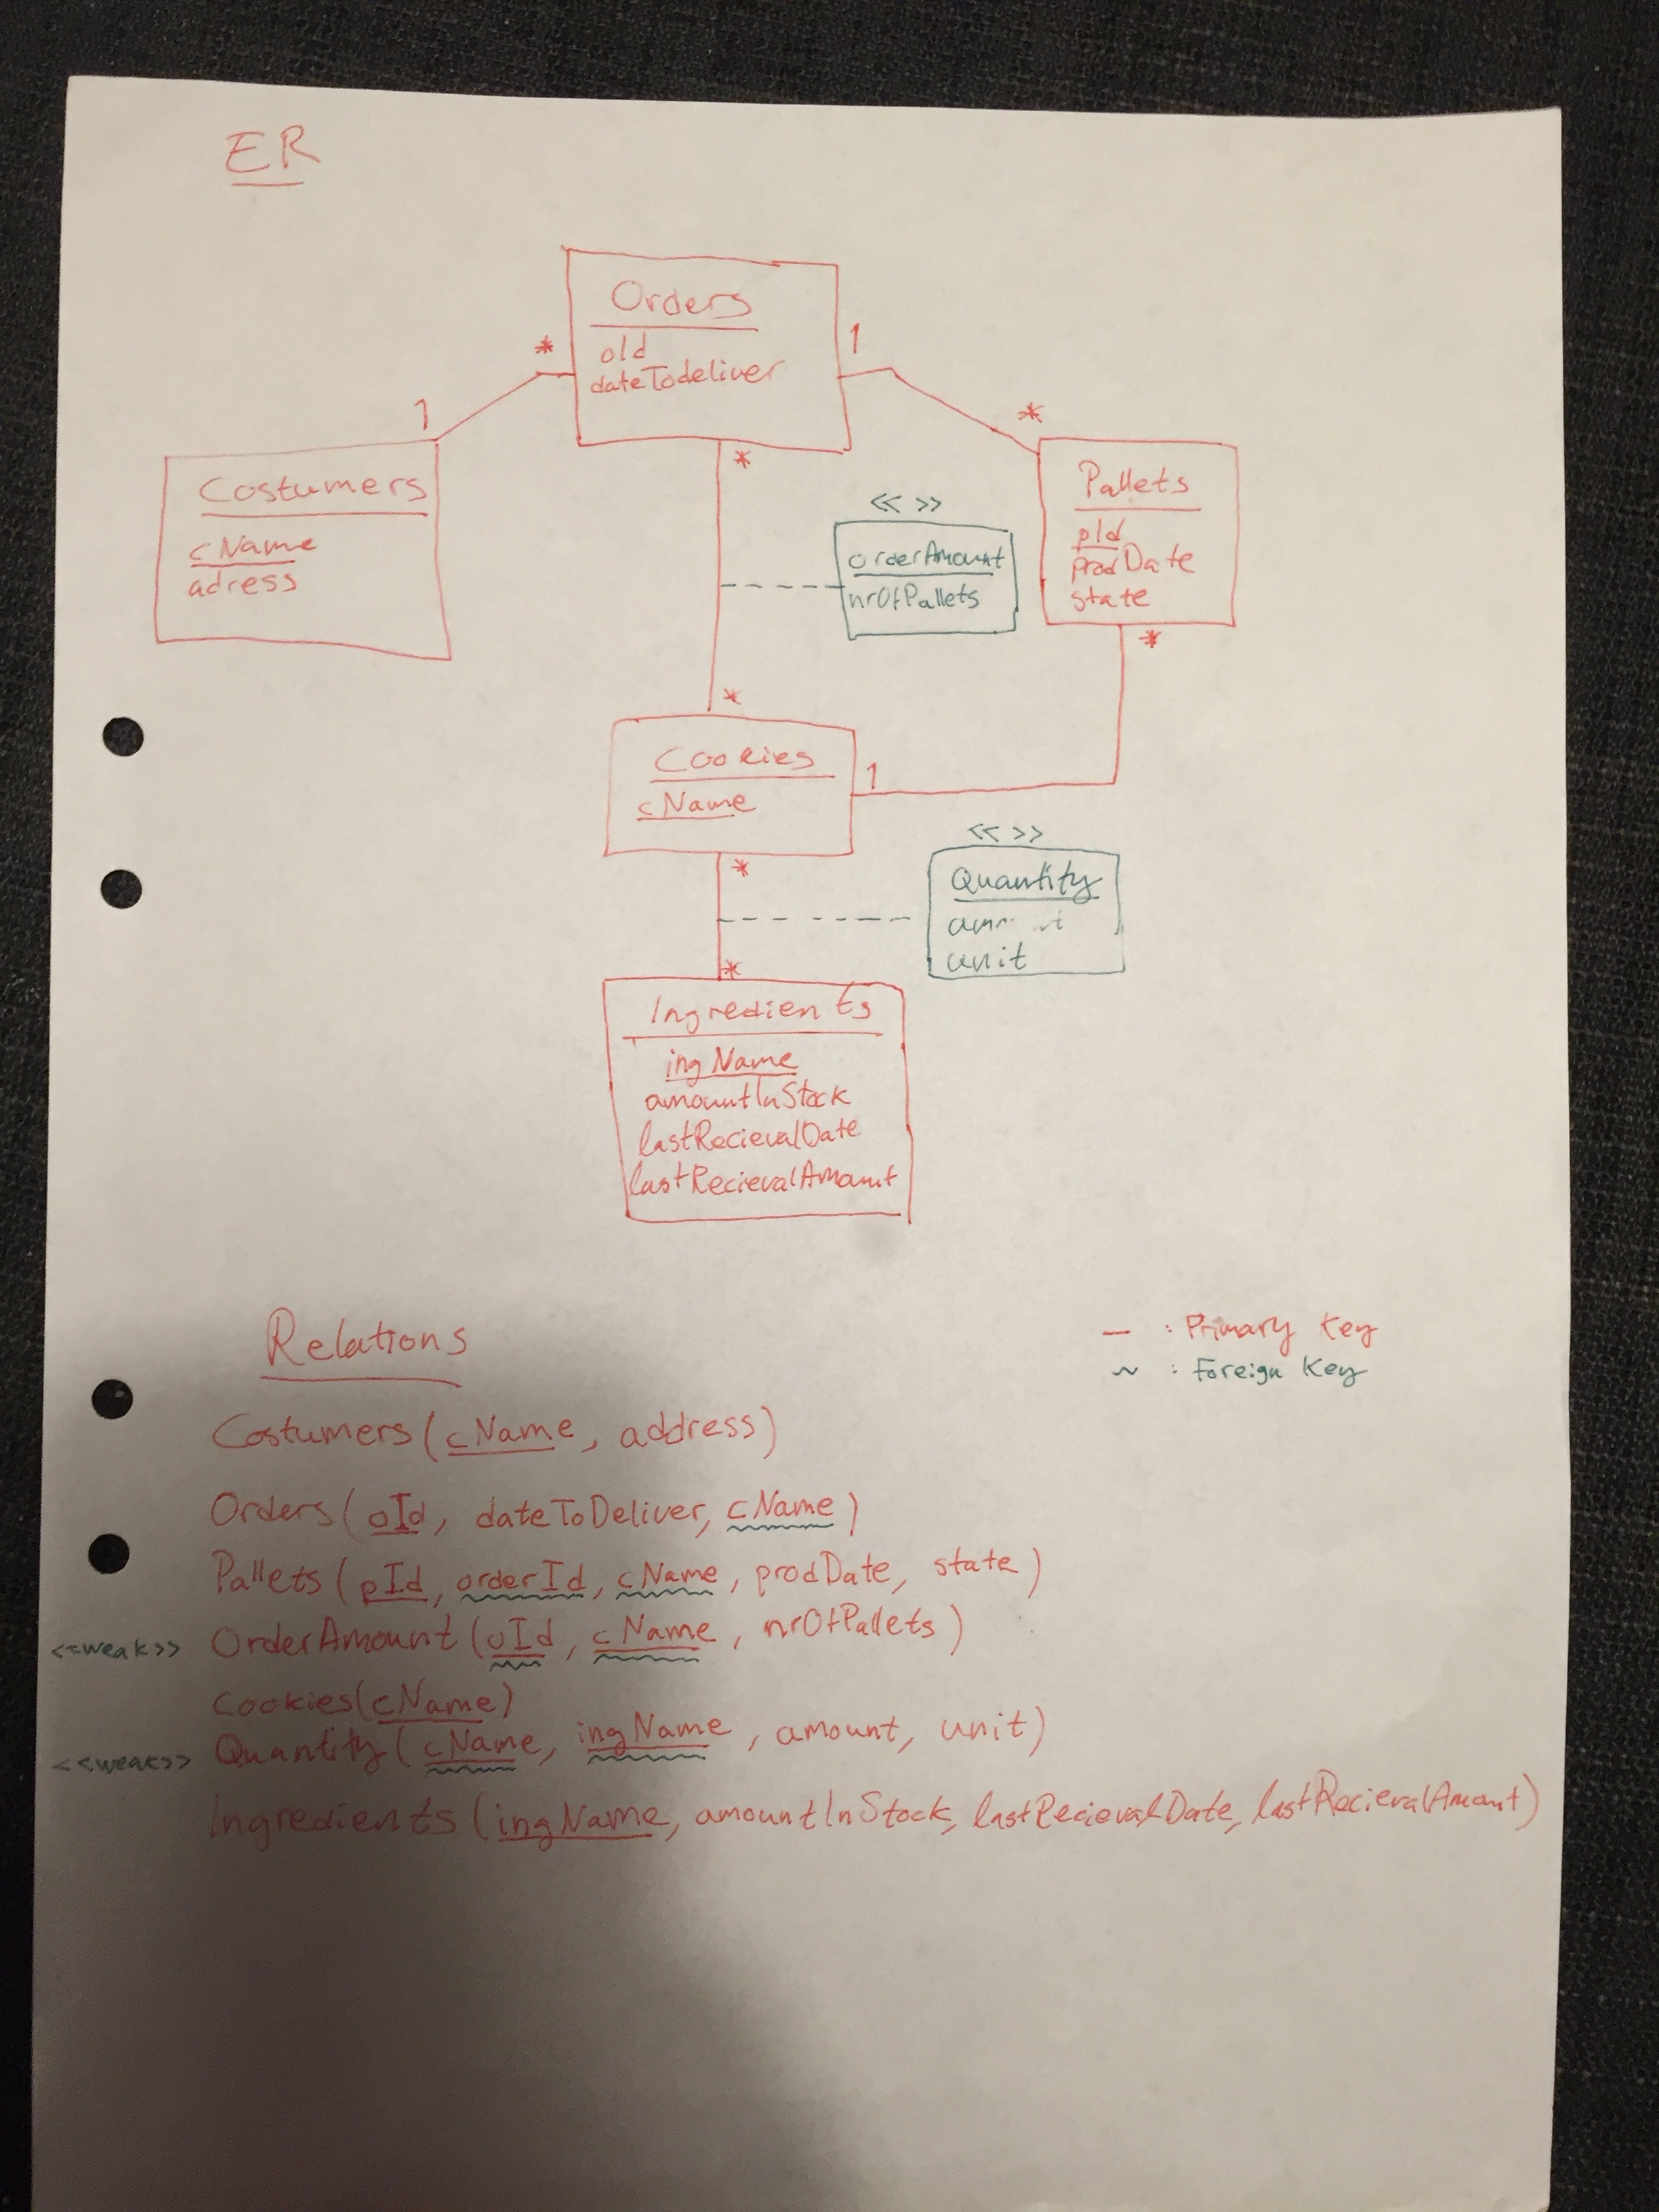 ER
Orders
oId
dateTodeliver
*
1
1
*
Costumers
cName
adress
Pallets
pId
prodDate
state
*
*
<< >>
orderAmount
nrOfPallets
*
Cookies
cName
1
<< >>
Quantity
unit
*
*
Ingredients
ingName
amountInStock
lastRecievalDate
lastRecievalAmount
Relations
— : Primary Key
~ : Foreign Key
Costumers (cName, address)
Orders (oId, dateToDeliver, cName)
Pallets (pId, orderId, cName, prodDate, state)
<<weak>> OrderAmount (oId, cName, nrOfPallets)
Cookies (cName)
<<weak>> Quantity (cName, ingName, amount, unit)
Ingredients (ingName, amountInStock, lastRecievalDate, lastRecievalAmount)